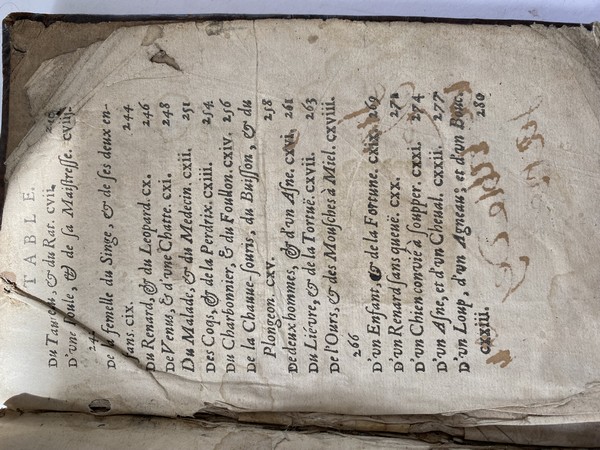 TABLE.
Du Taureau, & du Rat. cvii.
D'une Poule, & de sa Maistresse. cviij.
De la femelle du Singe, & de ses deux en-
fans. cix. 244
Du Renard, & du Leopard. cx. 246
De Venus, & d'une Chatte. cxi. 248
Du Malade, & du Medecin. cxii. 251
Des Coqs, & de la Perdrix. cxiii. 254
Du Charbonnier, & du Foullon. cxiv. 256
De la Chauue-souris, du Buisson, & du
Plongeon. cxv. 258
De deux hommes, & d'vn Asne. cxvi. 261
Du Liévre, & de la Tortuë. cxvii. 263
De l'Ours, & des Mousches à Miel. cxviii.
266
D'vn Enfant, & de la Fortune. cxix. 269
D'vn Renard sans queuë. cxx. 272
D'vn Chien convié à soupper. cxxi. 274
D'vn Asne, et d'vn Cheval. cxxii. 277
D'vn Loup, d'vn Agneau, et d'vn Bouc.
cxxiii. 280